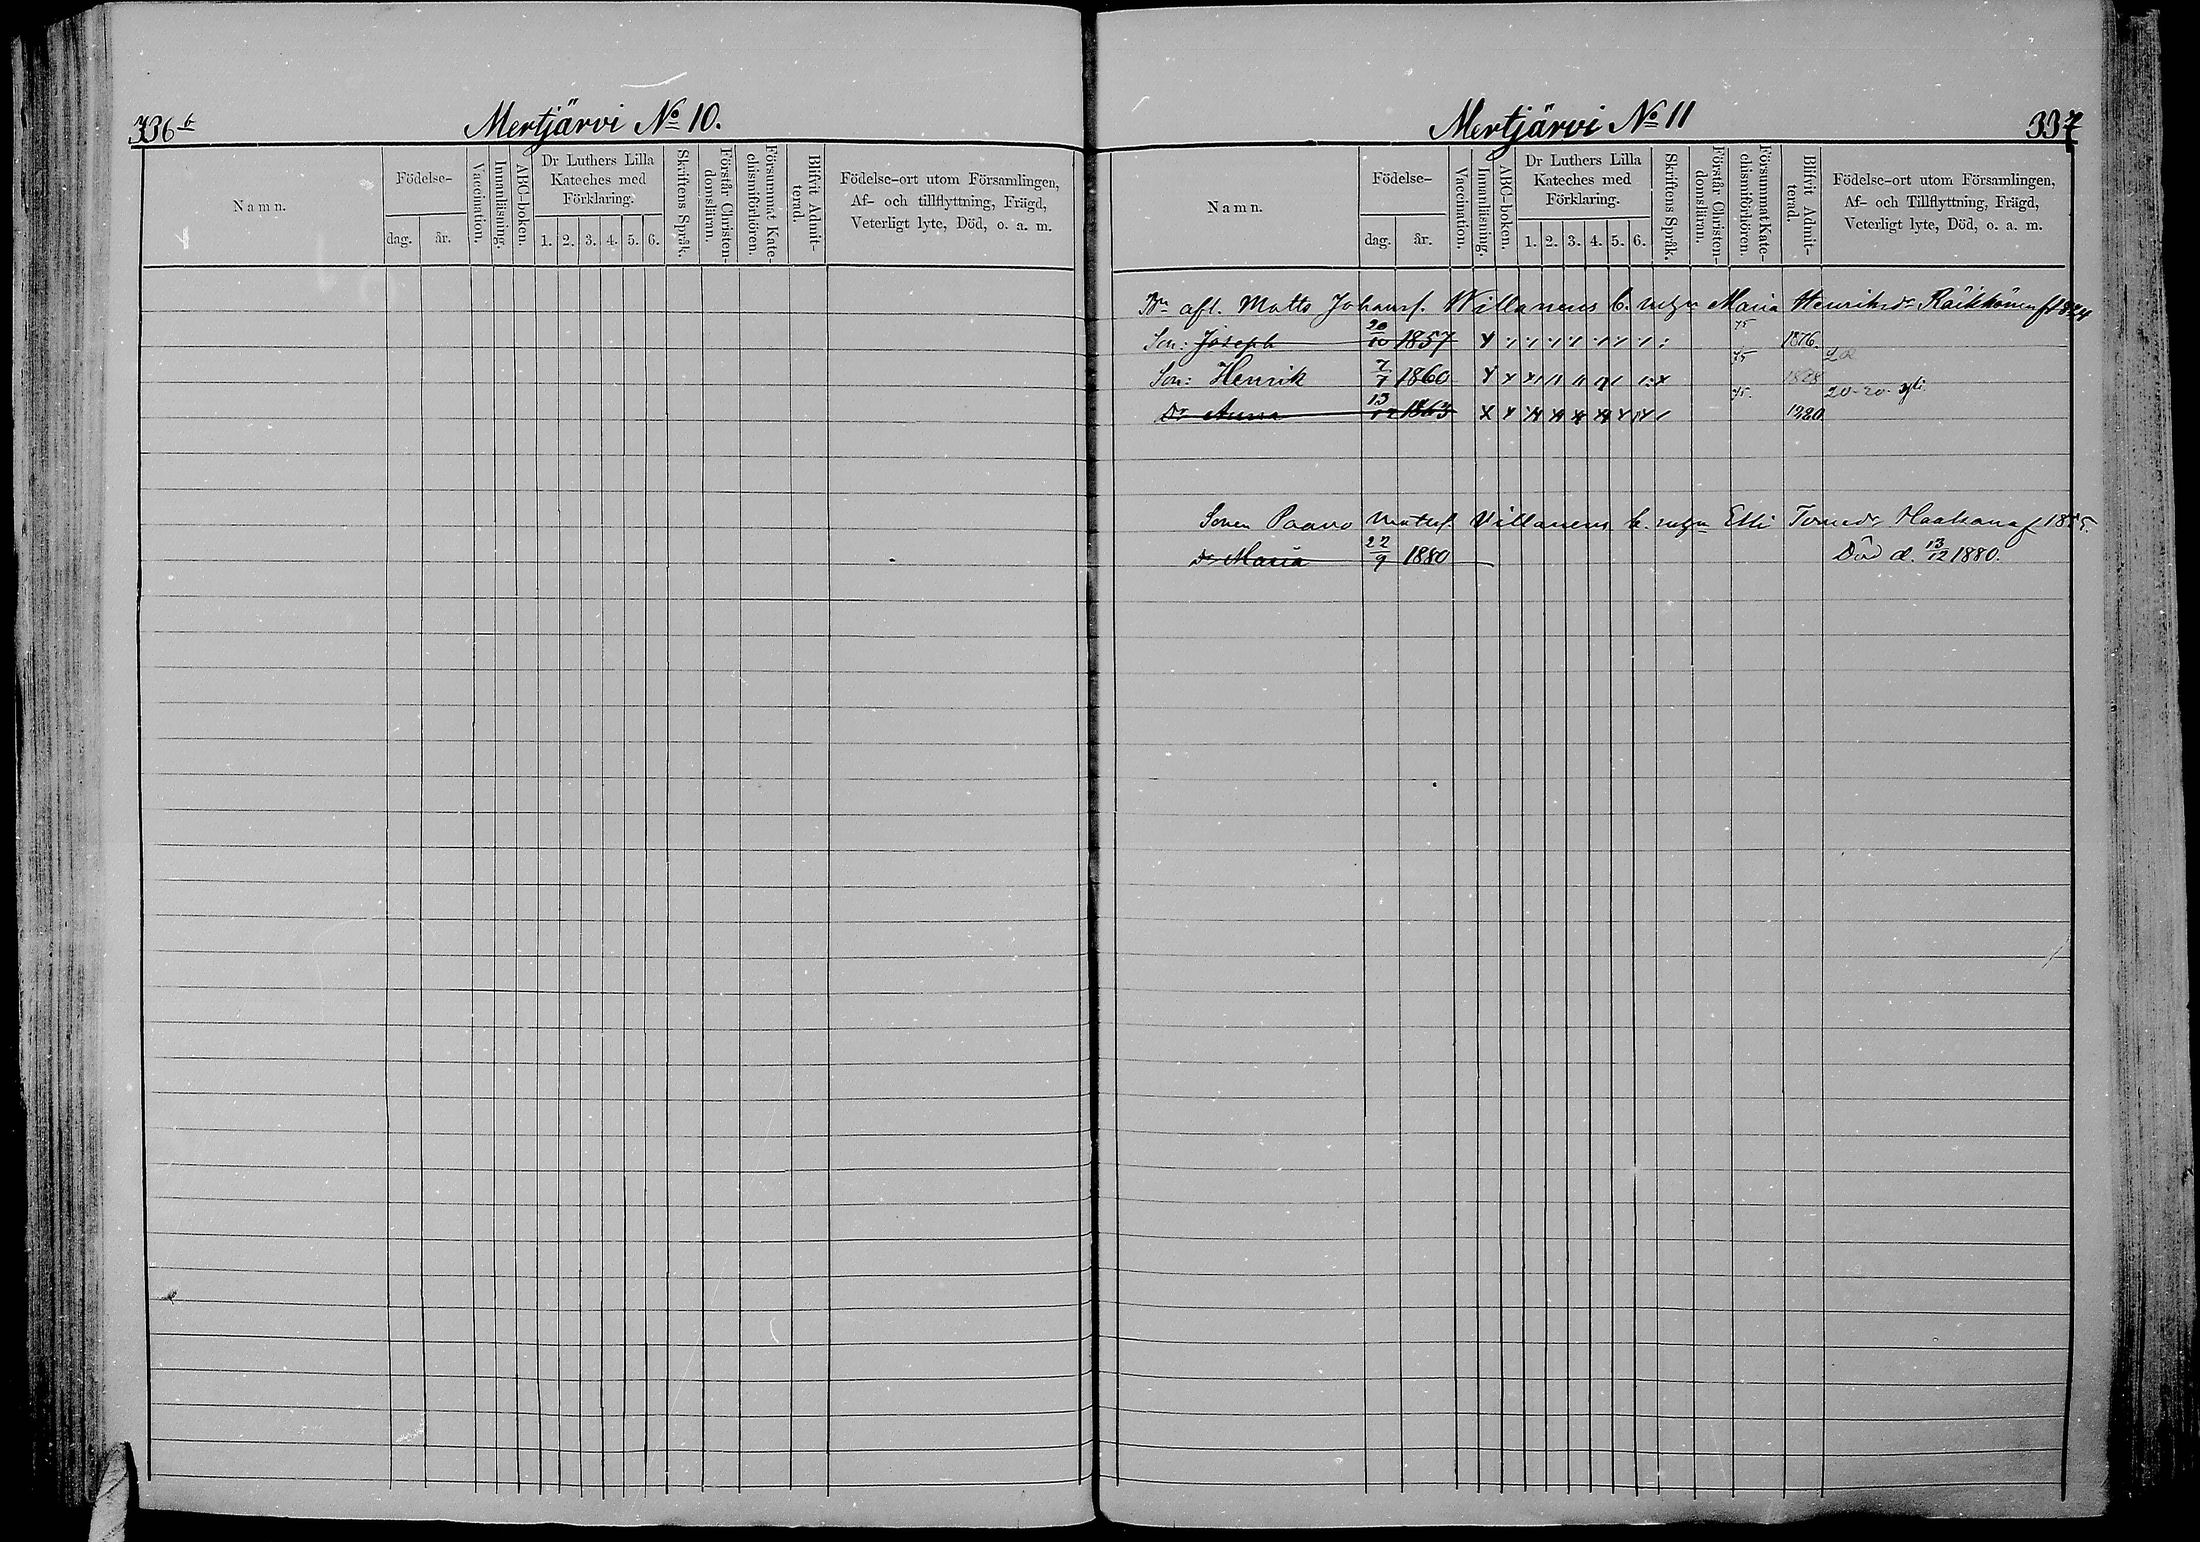 336 b
Mertjärvi No 10.
Namn.
Födelse-
dag.
år.
Vaccination.
Innanläsning.
ABC-boken.
Dr Luthers Lilla
Kateches med
Förklaring.
1. 2. 3. 4. 5. 6.
Skriftens Språk.
Förstår Christen-
domsläran.
Försummat Kate-
chismiförhören.
Blifvit Admit-
terad.
Födelse-ort utom Församlingen,
Af- och tillflyttning, Frägd,
Veterligt lyte, Död, o. a. m.
Mertjärvi No 11
337
Namn.
Födelse-
dag.
år.
Vaccination.
Innanläsning.
ABC-boken.
Dr Luthers Lilla
Kateches med
Förklaring.
1. 2. 3. 4. 5. 6.
Skriftens Språk.
Förstår Christen-
domsläran.
Försummat Kate-
chismiförhören.
Blifvit Admit-
terad.
Födelse-ort utom Församlingen,
Af- och Tillflyttning, Frägd,
Veterligt lyte, Död, o. a. m.
afl. Matts Johansf. Willanens Maria Henriksdr Räikkönen f 1824
Son: Joseph 20/10 1857 75 1876.
Son: Henrik 7/7 1860 75
Dr Anna 13/12 1863 75. 1880
Sonen Paavo Mattsf. Villanens Elli Tomedr f 18
Dr Maria 22/9 1880 Död d. 13/12 1880.